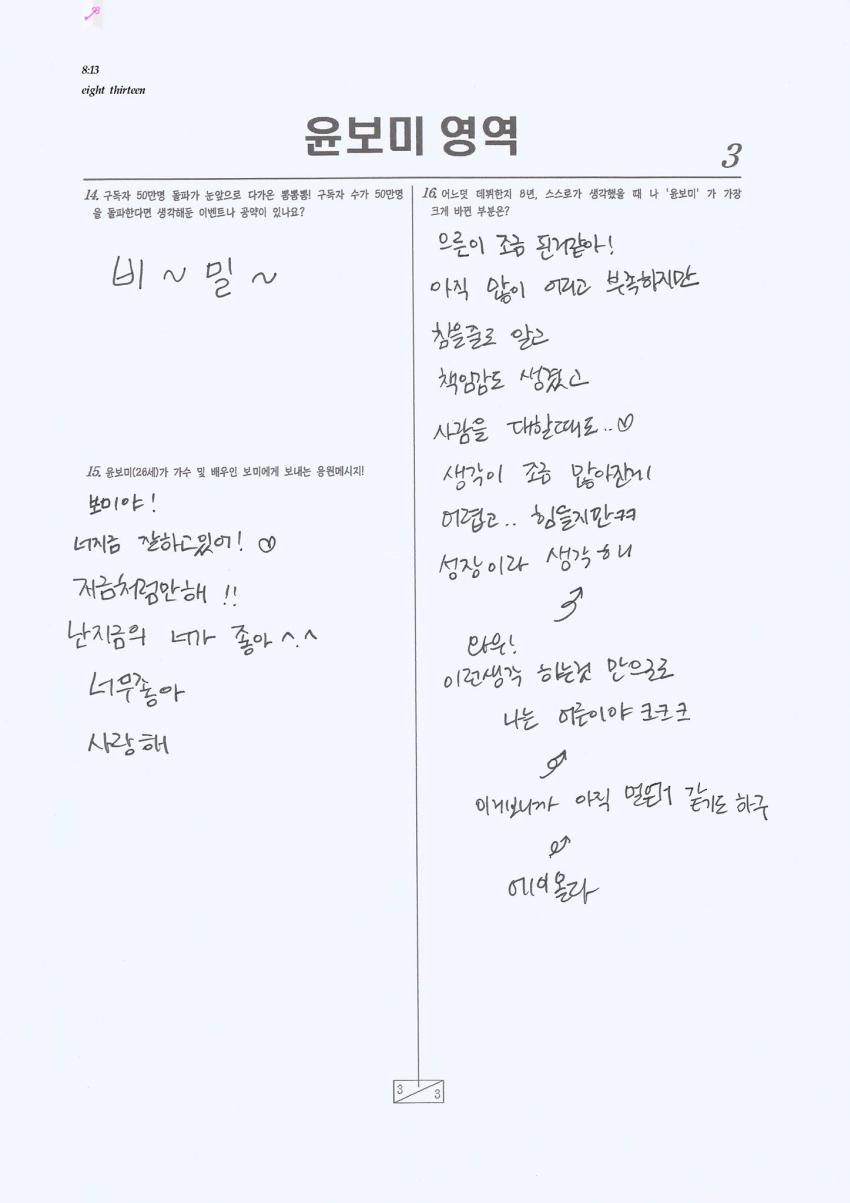 8:13
eight thirteen
윤보미 영역
3
14. 구독자 50만명 돌파가 눈앞으로 다가온 뽐뽐뽐! 구독자 수가 50만명
을 돌파한다면 생각해둔 이벤트나 공약이 있나요?
비 ~ 밀 ~
15. 윤보미(26세)가 가수 및 배우인 보미에게 보내는 응원메시지!
보미야!
너지금 잘하고있어! ♡
지금처럼만해 !!
난지금의 너가 좋아 ^.^
너무좋아
사랑해
16. 어느덧 데뷔한지 8년, 스스로가 생각했을 때 나 '윤보미' 가 가장
크게 바뀐 부분은?
으른이 조금 된거같아!
아직 많이 어리고 부족하지만
참을줄로 알고
책임감도 생겼고
사람을 대할때로..♡
생각이 조금 많아진게
어렵고.. 힘들지만ㅋㅋ
성장이라 생각하니
와우!
이런생각 하는것 만으로로
나는 어른이야 ㅋㅋㅋ
이거보니까 아직 멀은거 같기도 하구
에이 몰라
3
3